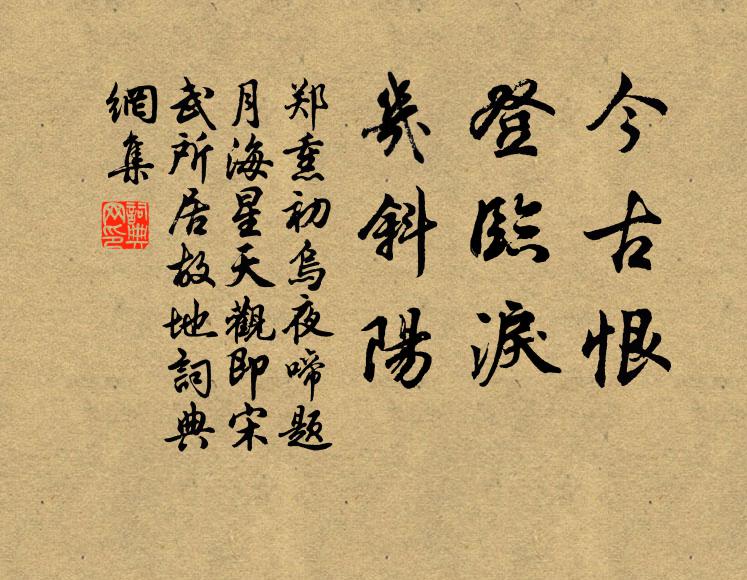 今古恨
登臨淚
幾斜陽
郑熏初烏夜啼題
月海星天觀即宋
武所居故地詞典
網集
詞典
网印